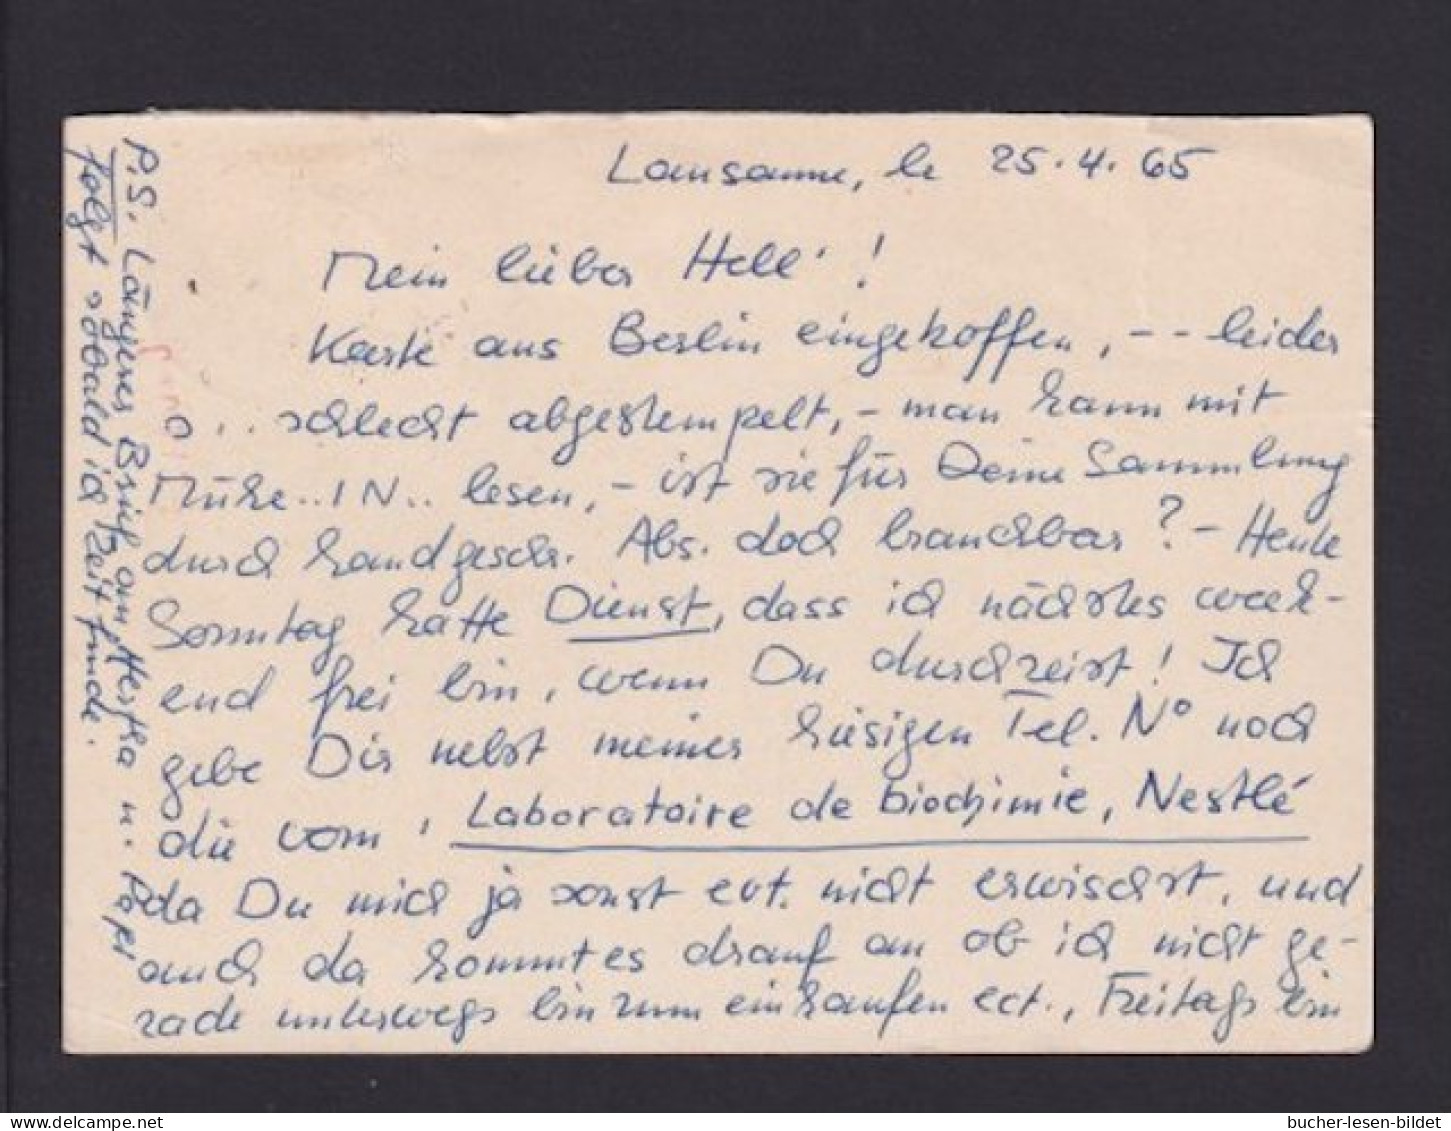 Lausanne, le 25.4.65
Mein lieber Hell'!
Karte aus Berlin eingetroffen, -- leider
... schlecht abgestempelt, - man kann mit
Mühe..IN.. lesen, - ist sie für Deine Sammlung
durch handgeschr. Abs. doch brauchbar? - Heute
Sonntag hatte Dienst, dass ich nächstes week-
end frei bin, wenn Du durchreist! Ich
gebe Dir nebst meiner hiesigen Tel. No noch
die vom, Laboratoire de biochimie, Nestlé
da Du mich ja sonst evt. nicht erwischst, und
auch da kommt es drauf an ob ich nicht ge-
rade unterwegs bin zum einkaufen ect., Freitags bin
P.S. Längerer Brief an Hertha u.
folgt sobald ich Zeit finde.
bucher-lesen-bildet